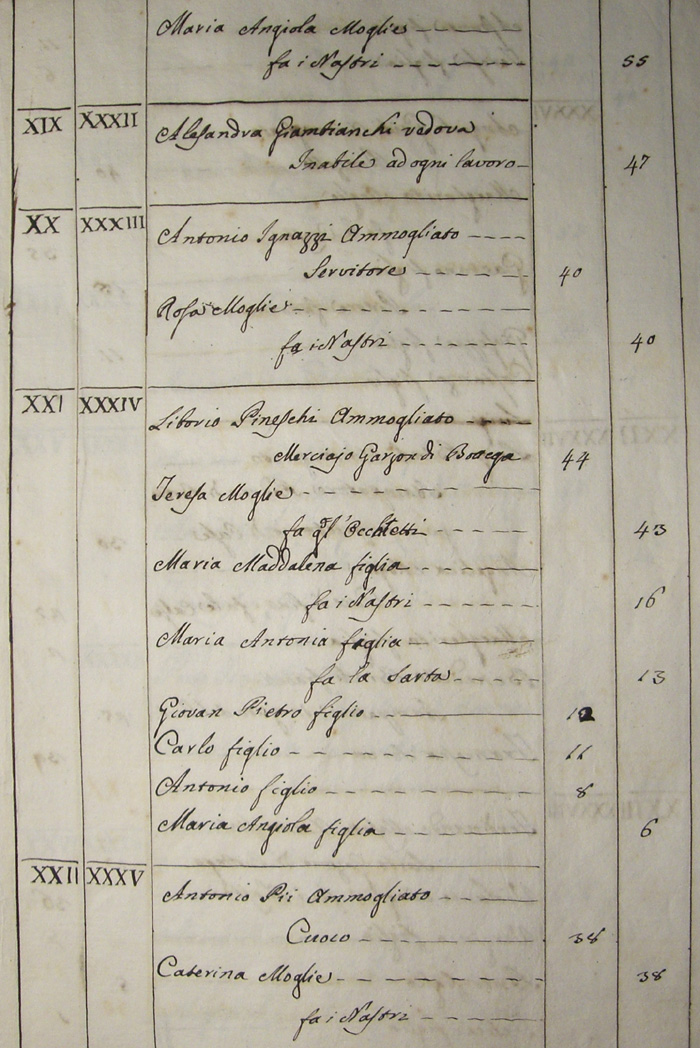 Maria Angiola Moglie
fa i Nastri 55
XIX XXXII Alesandra Giambianchi vedova
Inabile ad ogni lavoro 47
XX XXXIII Antonio Ignazzi Ammogliato
Servitore 40
Rosa Moglie
fa i Nastri 40
XXI XXXIV Liborio Pineschi Ammogliato
Merciajo Garzon di Bottega 44
Teresa Moglie
fa gl' Occhietti 43
Maria Maddalena figlia
fa i Nastri 16
Maria Antonia figlia
fa la Sarta 13
Giovan Pietro figlio 12
Carlo figlio 11
Antonio figlio 8
Maria Angiola figlia 6
XXII XXXV Antonio Pii Ammogliato
Cuoco 38
Caterina Moglie 38
fa i Nastri